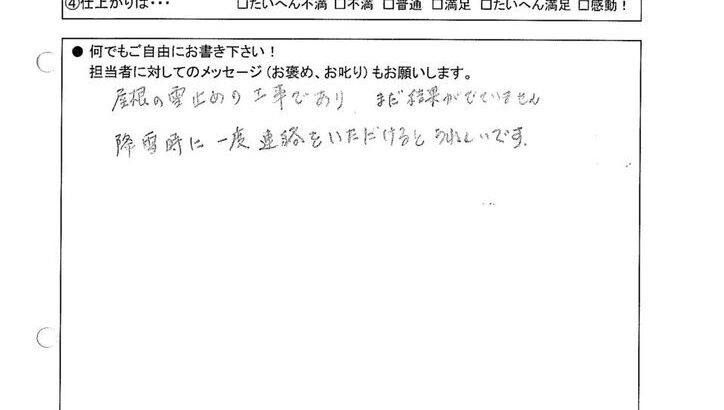 ④仕上がりは・・・ □たいへん不満 □不満 □普通 □満足 □たいへん満足 □感動！
● 何でもご自由にお書き下さい！
担当者に対してのメッセージ（お褒め、お叱り）もお願いします。
屋根の雪止めの工事であり まだ結果がでていません
降雪時に一度連絡をいただけるとうれしいです。